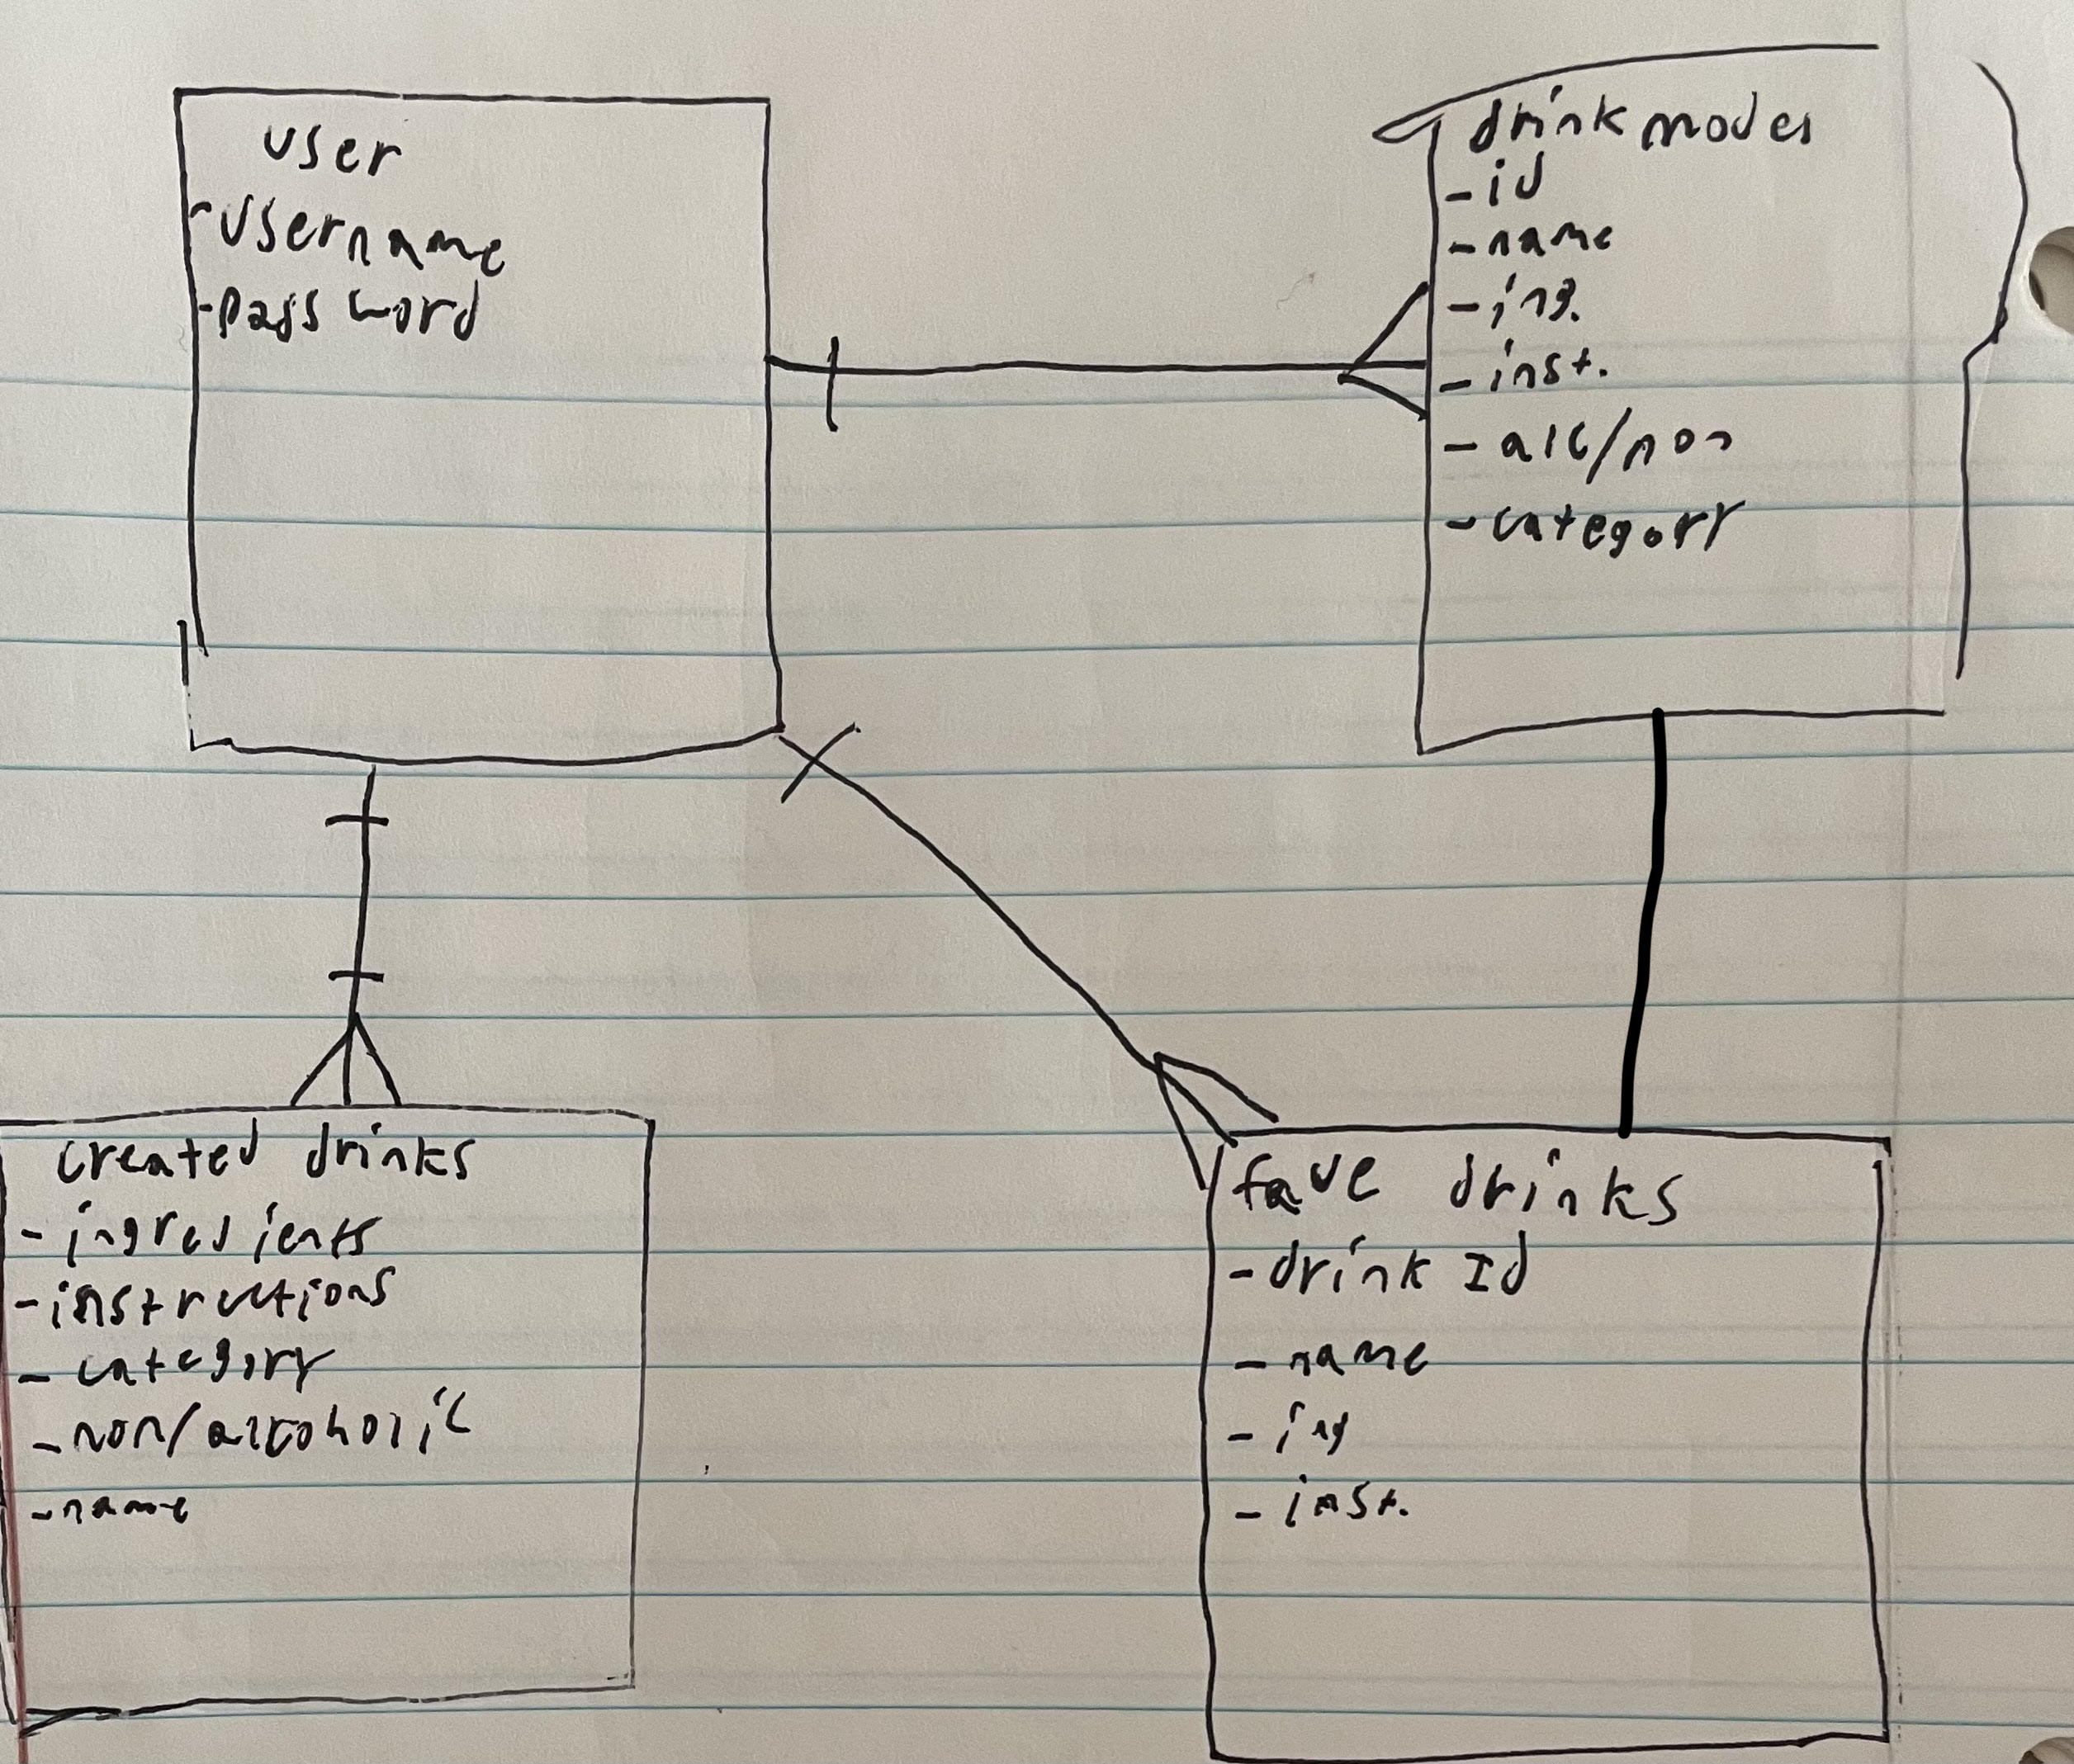 user
-username
-password
drink model
-id
-name
-ing.
-inst.
-alc/non
-category
created drinks
-ingredients
-instructions
-category
-non/alcoholic
-name
fave drinks
-drink Id
-name
-ing
-inst.